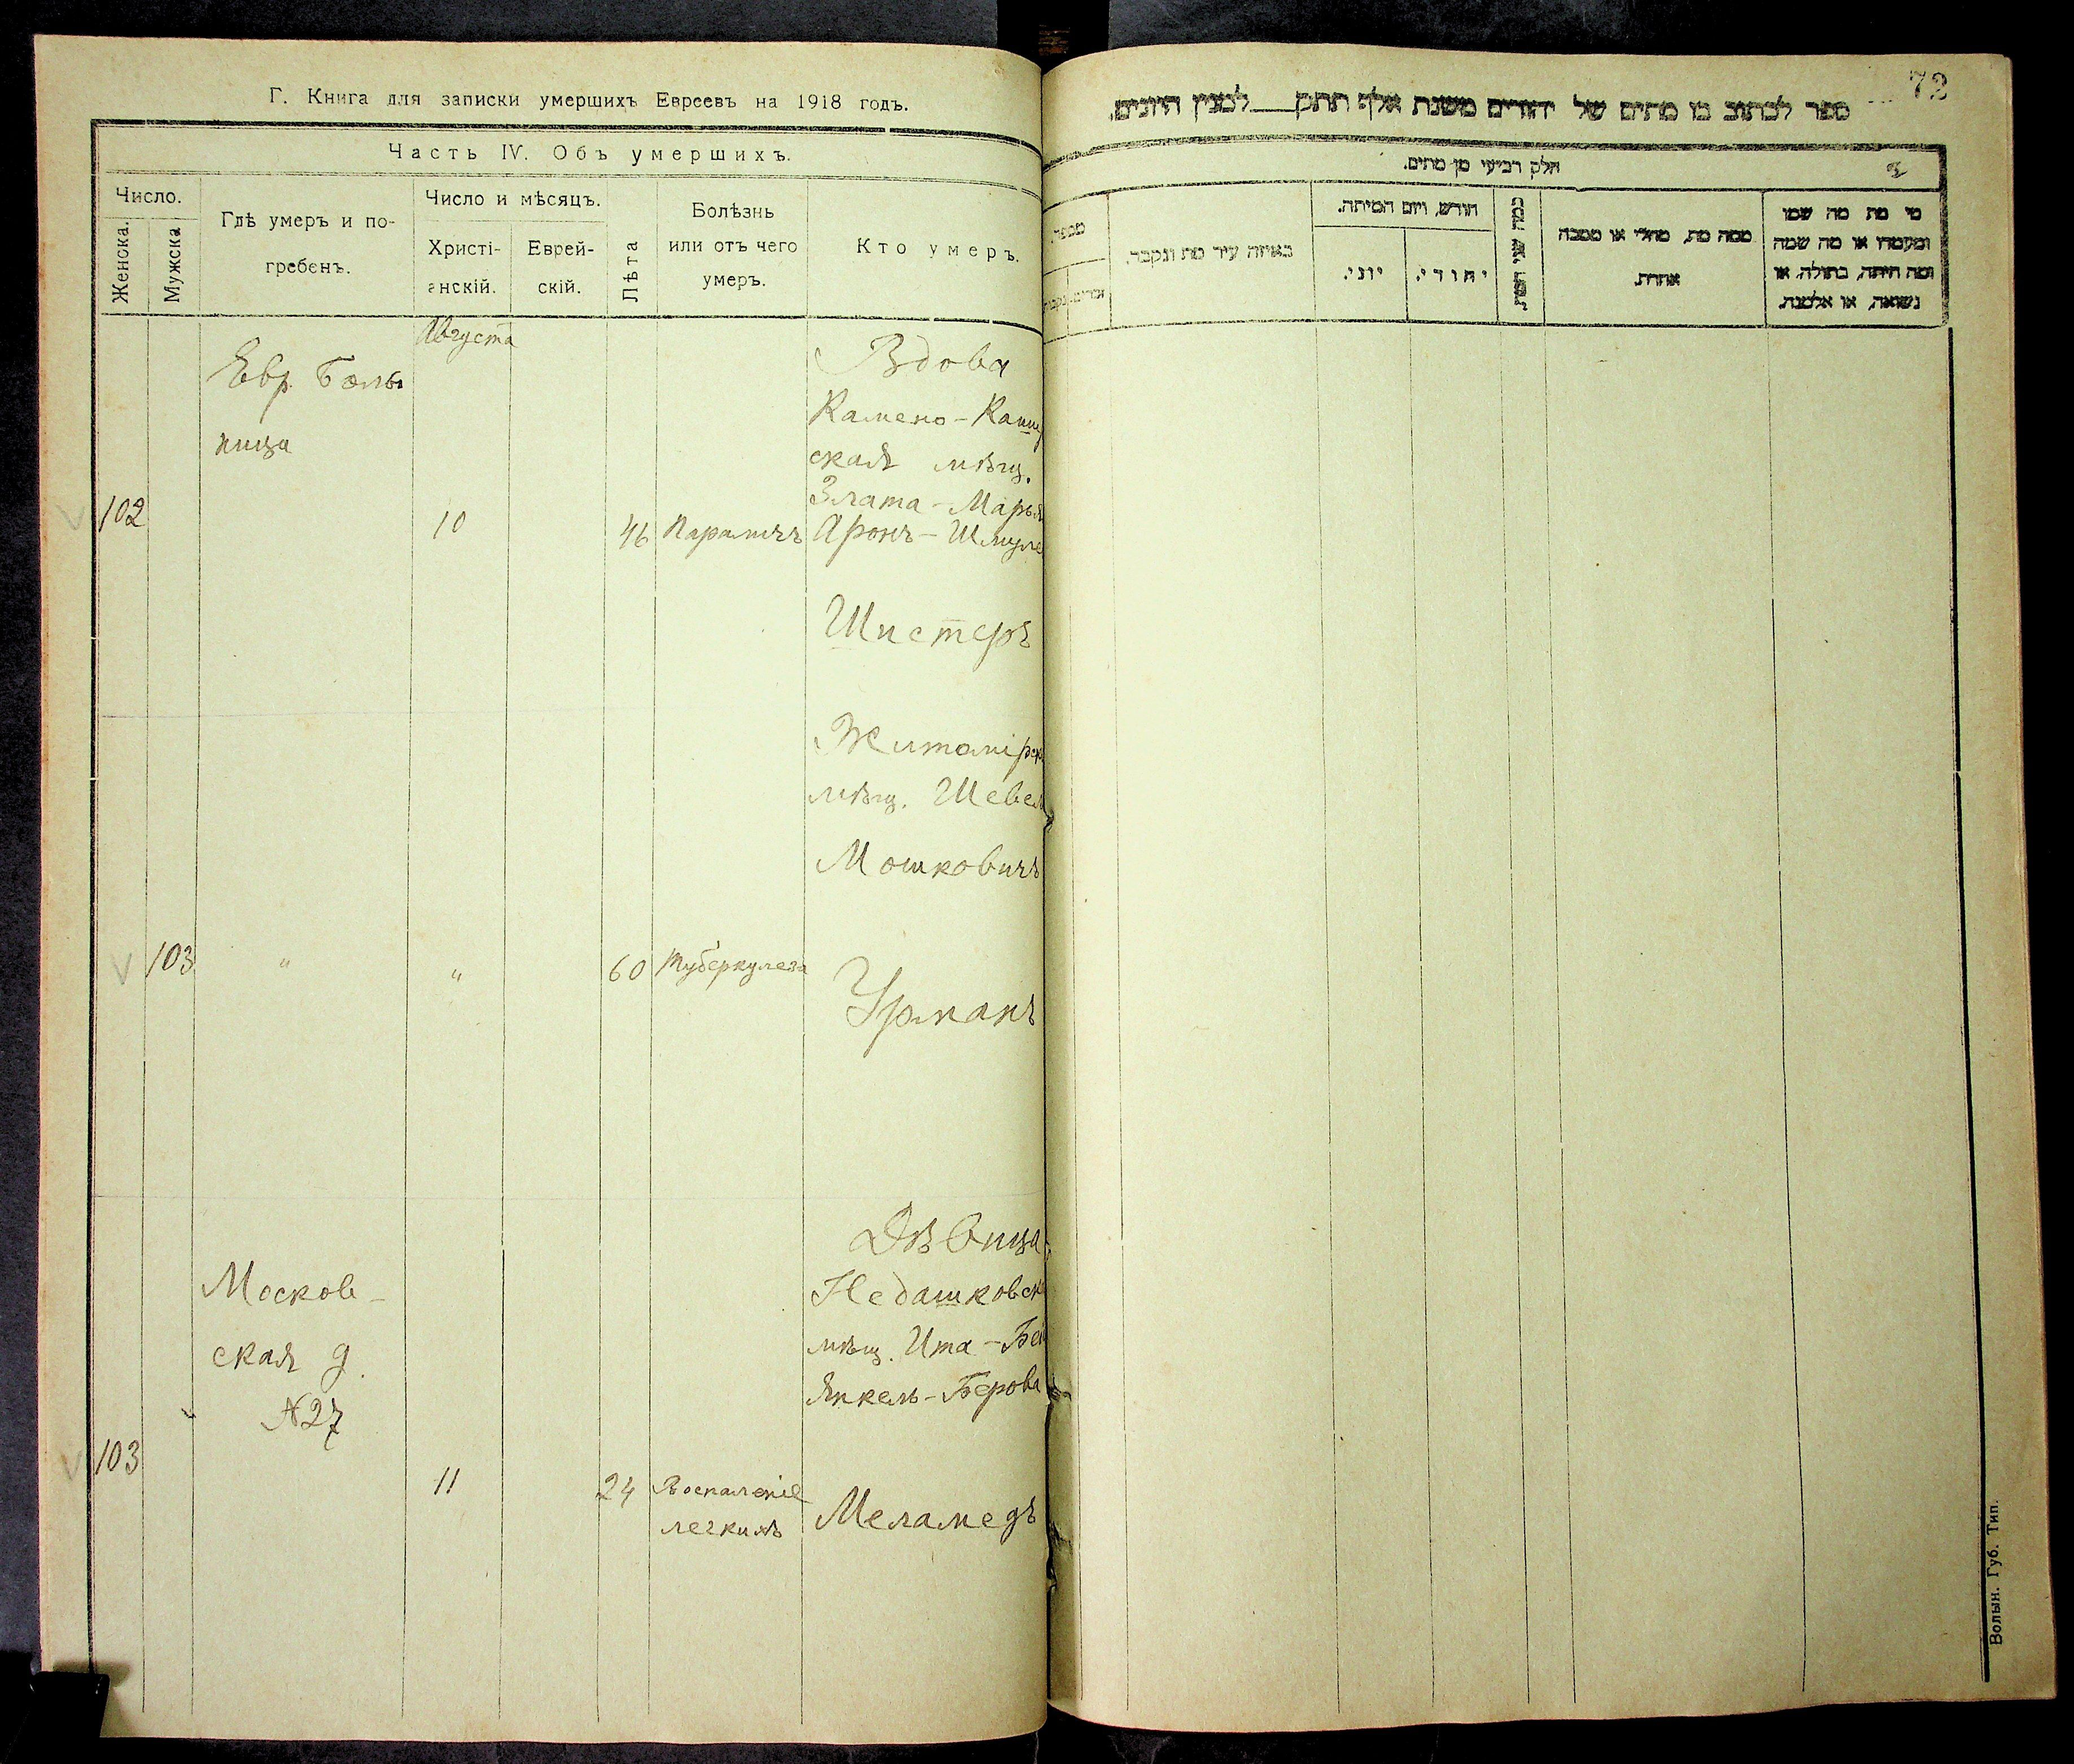 Г. Книга для записки умершихъ Евреевъ на 1918 годъ.
Часть IV. Объ умершихъ.
Число.
Женска.
Мужска
Гдѣ умеръ и по-
гребенъ.
Число и мѣсяцъ.
Христі-
анскій.
Еврей-
скій.
Лѣта
Болѣзнь
или отъ чего
умеръ.
Кто умеръ.
Августа
102
Евр. Боль
ница
10
46
Параличъ
Вдова
Камено-
ская мѣщ.
Злата-Марья
Аронъ-Шмуле
Шистеръ
103
"
"
60
Туберкулеза
Житомірск
мѣщ. Шевель
Мошковичъ
Урманъ
103
Москов-
ская д.
№27
11
24
Воспаленіе
легкихъ
Дѣвица
Недашковск
мѣщ. Ита-
Янкель-Берова
Меламедъ
72
ספר לכתוב בו מתים של יהודים משנת אלף תתק___ למנין היונים.
חלק רביעי מן מתים.
מספר
זכרים
באיזה עיר מת ונקבר.
חודש, ויום המיתה.
יוני.
יהודי.
כמה שני המת.
ממה מת, מחלי או מסבה
אחרת.
מי מת מה שמו
ומעמדו או מה שמה
ומה היתה, בתולה, או
נשואה, או אלמנה.
Волын. Губ. Тип.